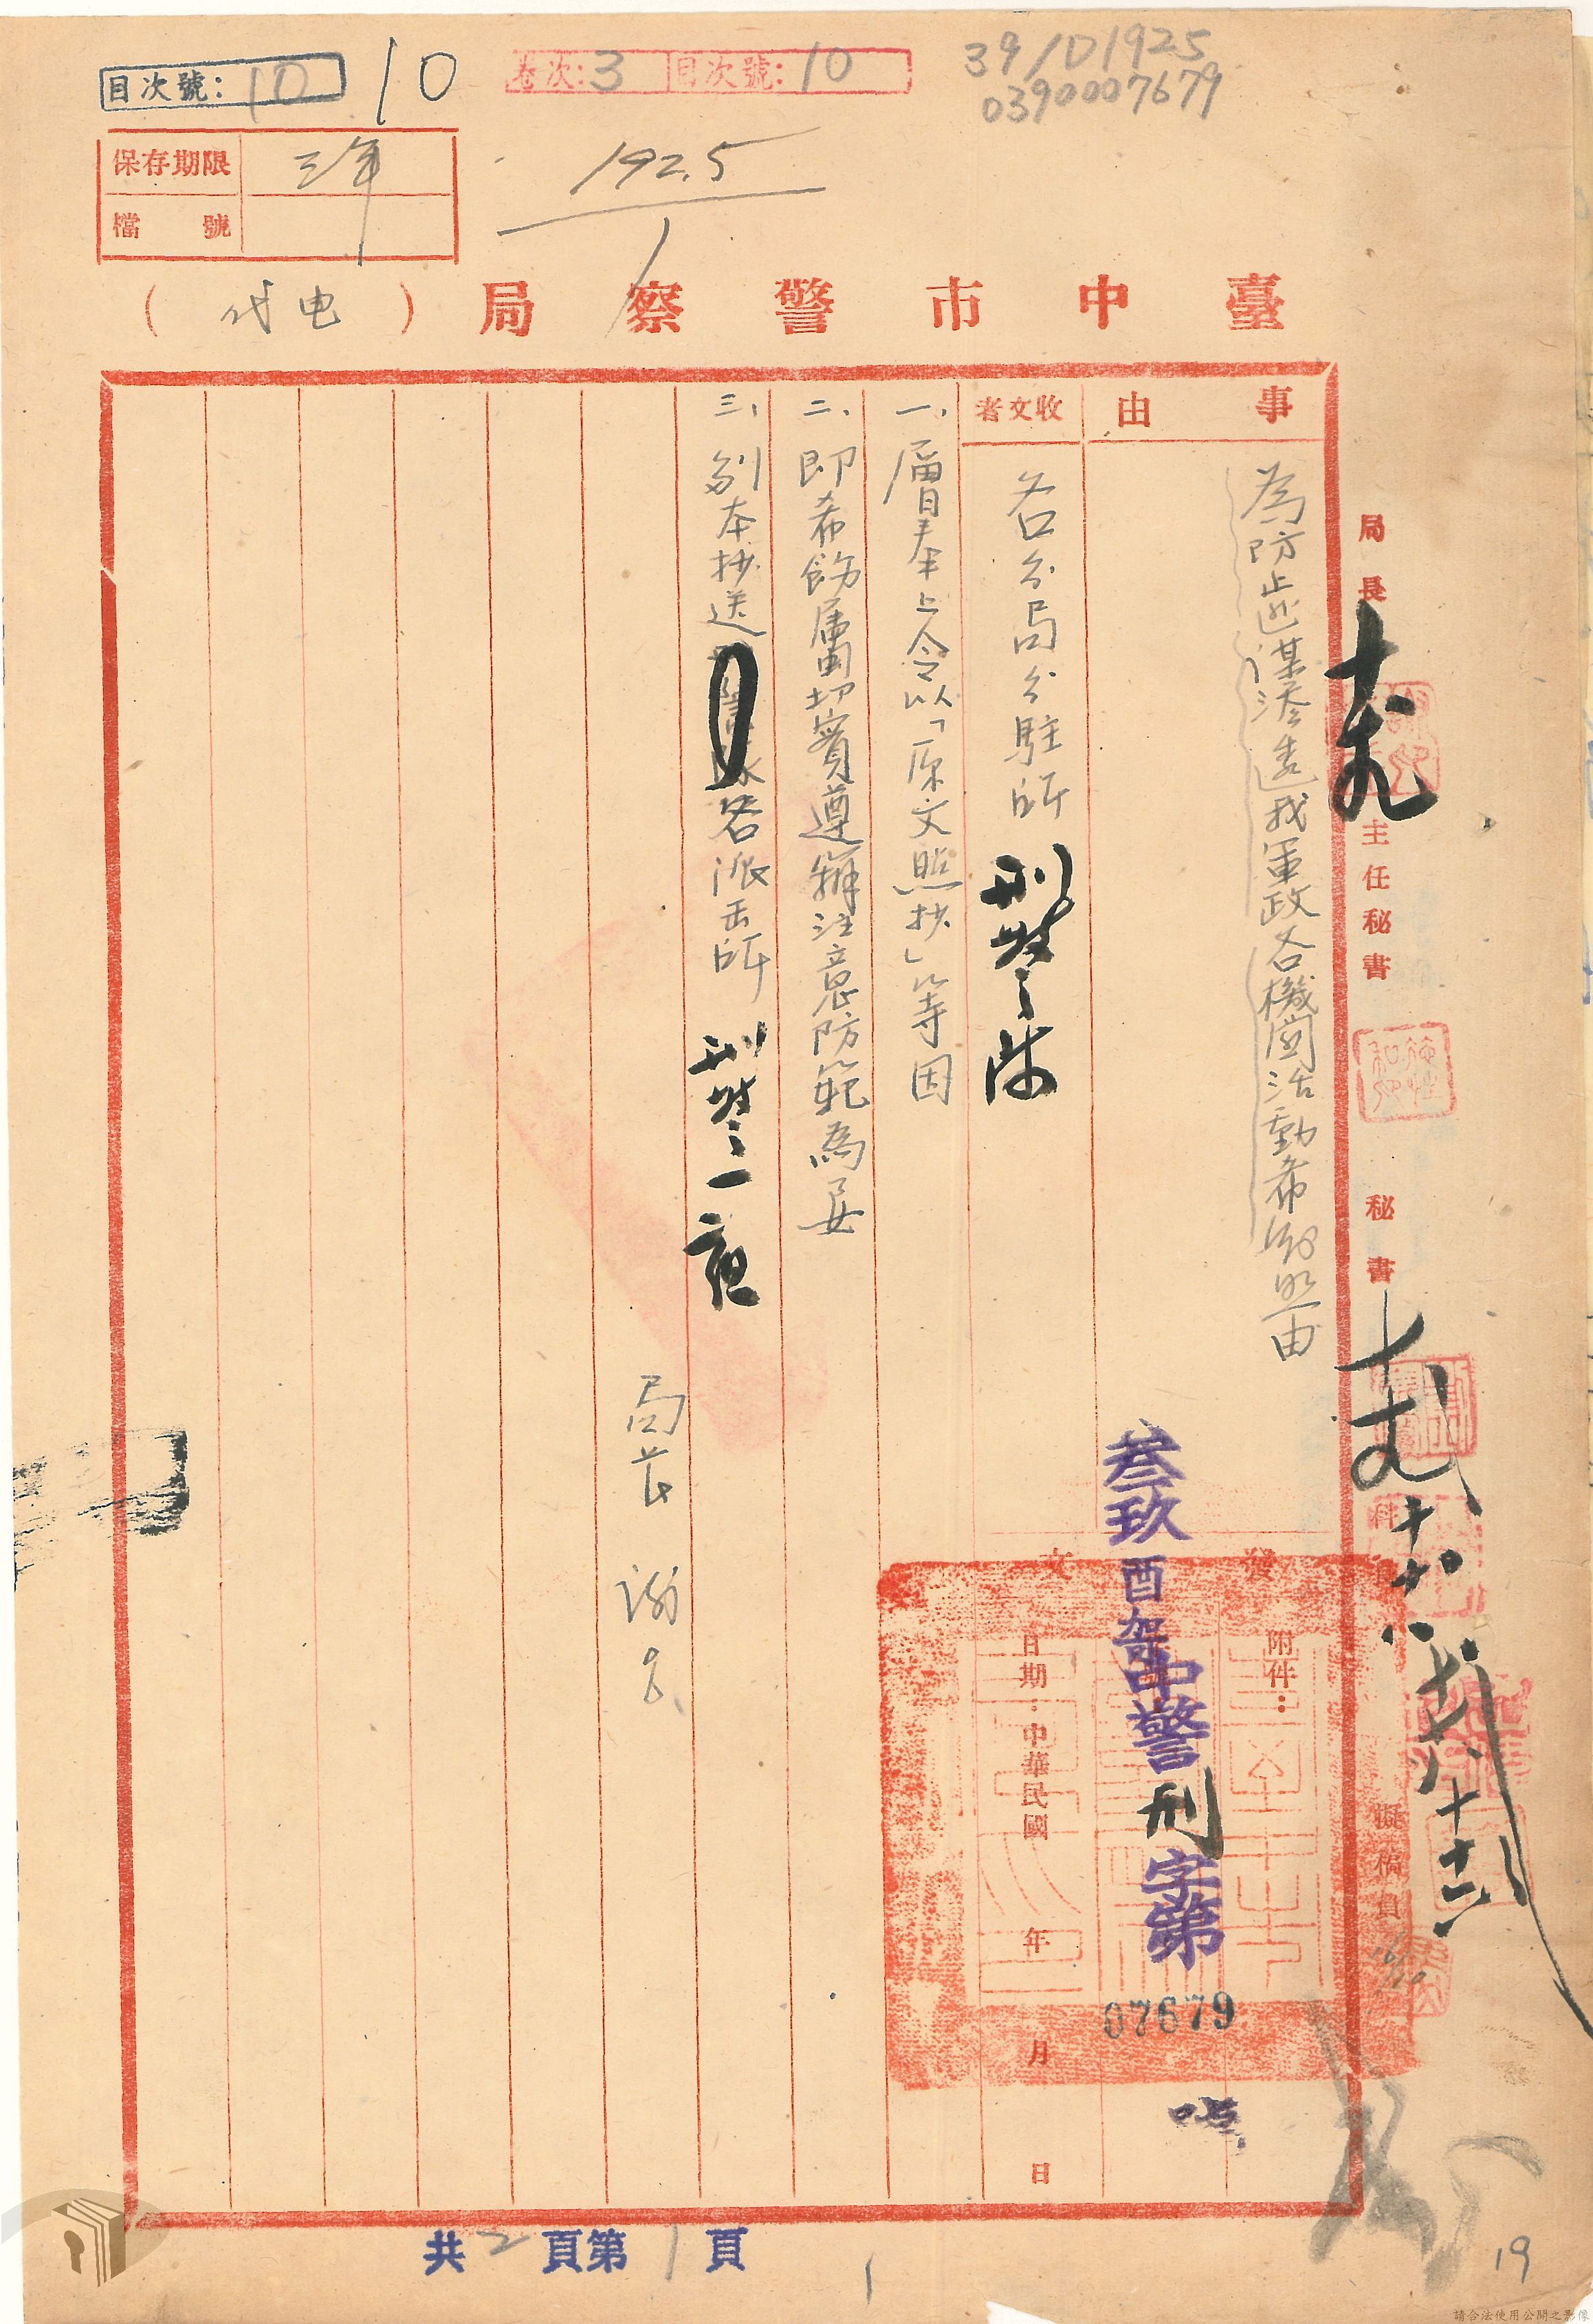 目次號：10
10
卷次：3 目次號：10
39/D1925
0390007679
保存期限 三年
檔號
1925
1
臺中市警察局（代电）
事由
為防止匪諜滲透我軍政各機関活動希飭照由
收文者
各分局分駐所 刑警隊
一、層奉上令以「原文照抄」等因
二、即希飭屬切實遵辦注意防範為要
三、副本抄送各派出所 刑警一
局長
發文
附件：
叁玖酉 中警刑字第
07679
日期：中華民國 年 月 日
局長
主任秘書
秘書
科
擬稿員
共2頁第1頁
1
19
請合法使用公開之影像